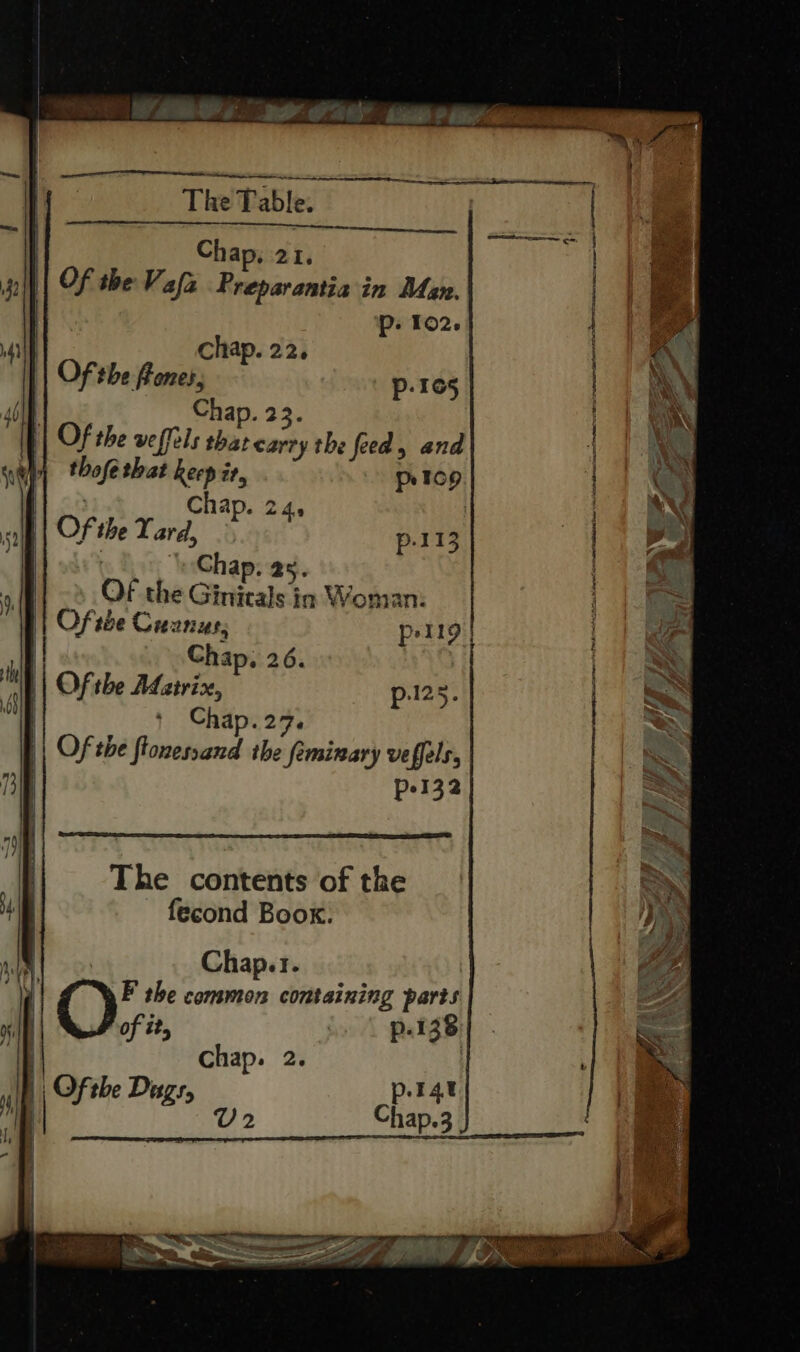 The Table.
Chap. 21.
Of the Vaſa Preparantia in Man.
p. 102.
Chap. 22.
Of the ſtones, p.105
Chap. 23.
Of the veſſels that carry the ſeed, and
thoſe that keep it, p.109
Chap. 24.
Of the Yard, p.113
Chap. 25.
Of the Ginitals in Woman.
Of the Cunnus, p.119
Chap. 26.
Of the Matrix, p.125.
Chap. 27.
Of the ſtones and the ſeminary veſſels,
p.132
The contents of the
ſecond Book.
Chap.1.
OF the common containing parts
of it, p.138
Chap. 2.
Of the Dugs, p.141
V2 Chap.3